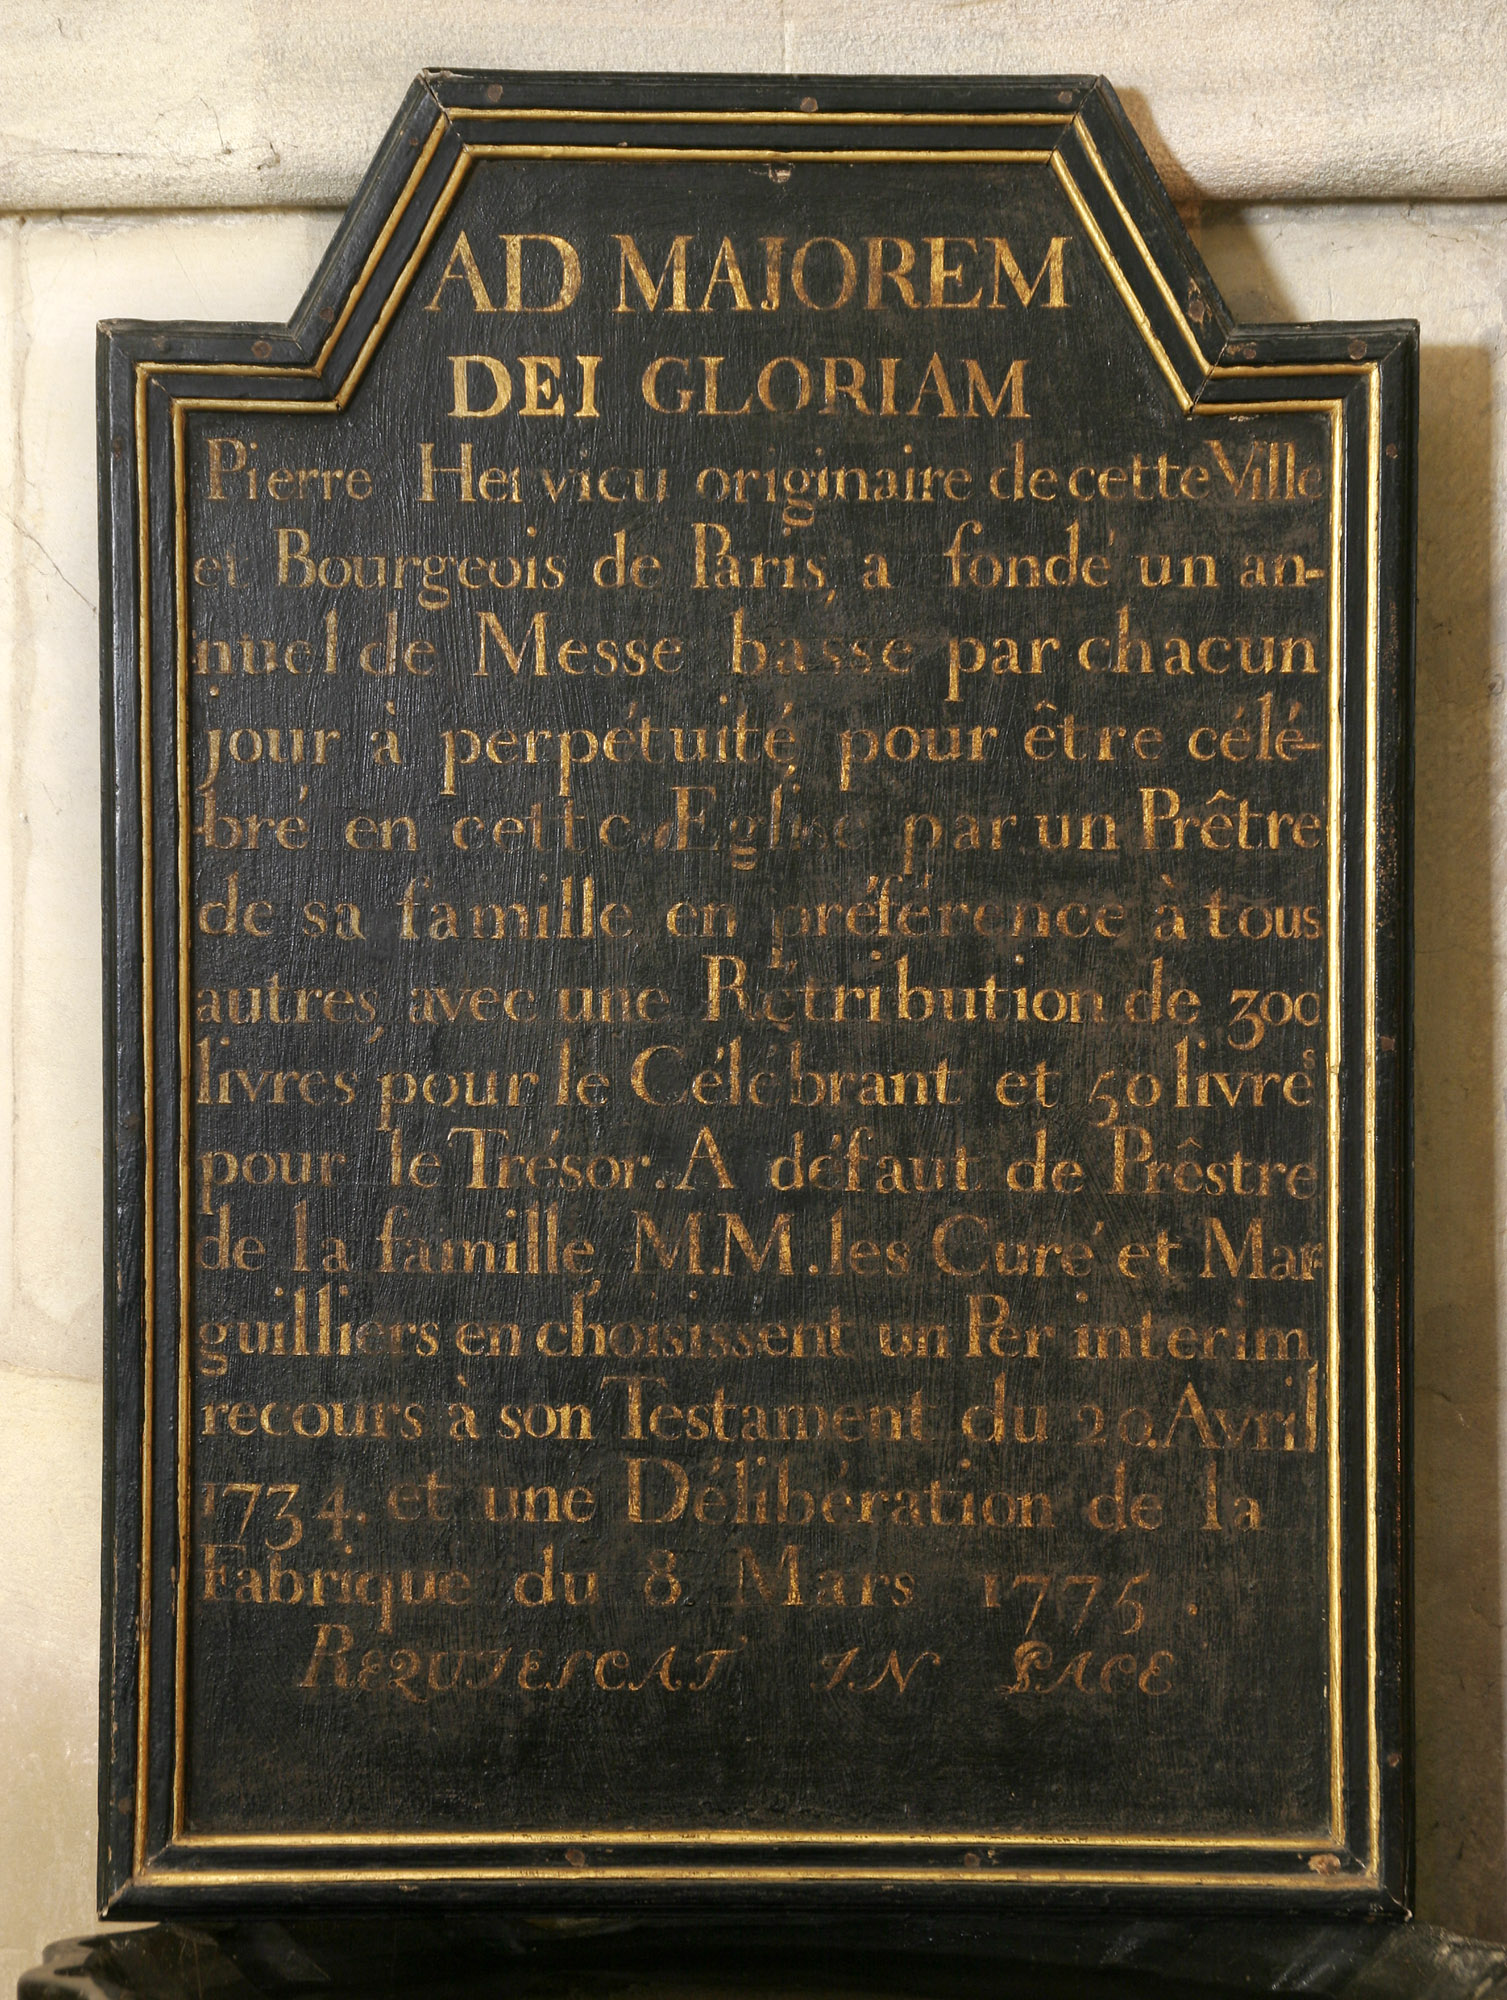 AD MAJOREM
DEI GLORIAM
Pierre Hervieu originaire de cette Ville
et Bourgeois de Paris, a fondé un an-
nuel de Messe basse par chacun
jour à perpétuité pour être célé-
bré en cette Eglise par un Prêtre
de sa famille en préférence à tous
autres, avec une Rétribution de 300
livres pour le Célébrant et 50 livres
pour le Trésor. A défaut de Prêstre
de la famille, M.M. les Curé et Mar-
guilliers en choisissent un Per interim
recours à son Testament du 20. Avril
1734. et une Délibération de la
Fabrique du 8 Mars 1775.
REQUIESCAT IN PACE